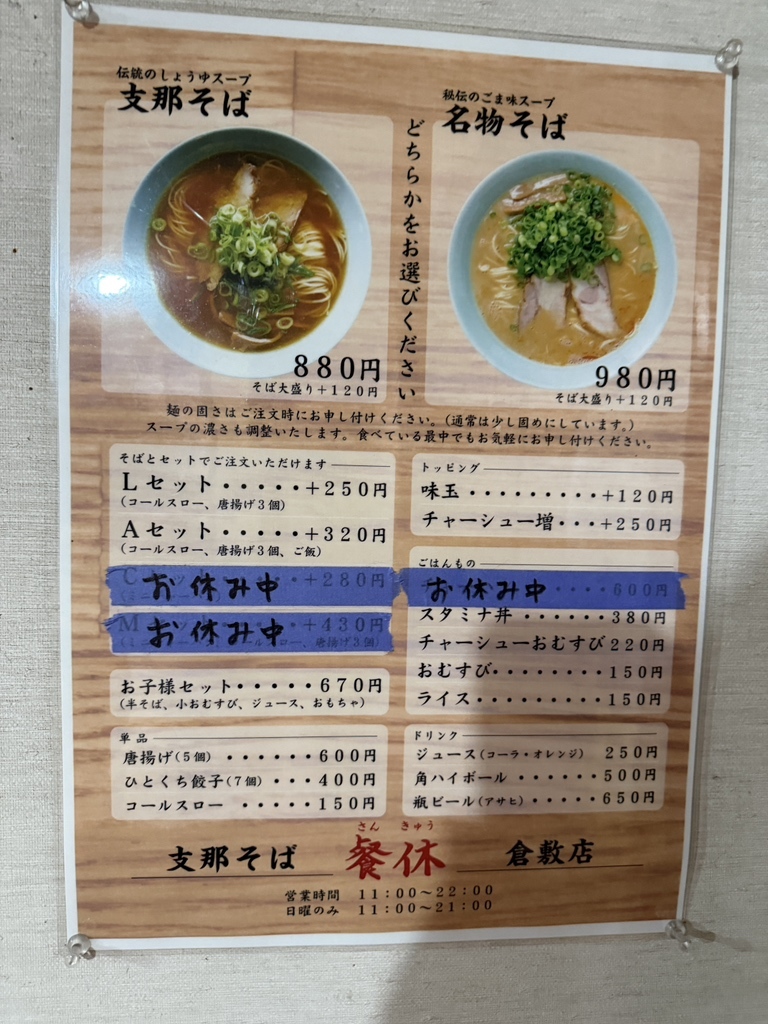 伝統のしょうゆスープ
支那そば
880円
そば大盛り+120円
どちらかをお選びください
秘伝のごま味スープ
名物そば
980円
そば大盛り+120円
麺の固さはご注文時にお申し付けください。(通常は少し固めにしています。)
スープの濃さも調整いたします。食べている最中でもお気軽にお申し付けください。
そばとセットでご注文いただけます
Lセット・・・・・+250円
(コールスロー、唐揚げ3個)
Aセット・・・・・+320円
(コールスロー、唐揚げ3個、ご飯)
C ット・・・+280円
お休み中
M ット・・・+430円
お休み中
唐揚げ3個)
お子様セット・・・・・670円
(半そば、小おむすび、ジュース、おもちゃ)
単品
唐揚げ(5個)・・・・・・600円
ひとくち餃子(7個)・・・400円
コールスロー・・・・・150円
トッピング
味玉・・・・・・・・・+120円
チャーシュー増・・・+250円
ごはんもの
お休み中・・・・600円
スタミナ丼・・・・・・380円
チャーシューおむすび220円
おむすび・・・・・・・150円
ライス・・・・・・・・150円
ドリンク
ジュース(コーラ・オレンジ) 250円
角ハイボール・・・・・・500円
瓶ビール(アサヒ)・・・・・650円
支那そば
さん きゅう
餐休
倉敷店
営業時間 11:00〜22:00
日曜のみ 11:00〜21:00